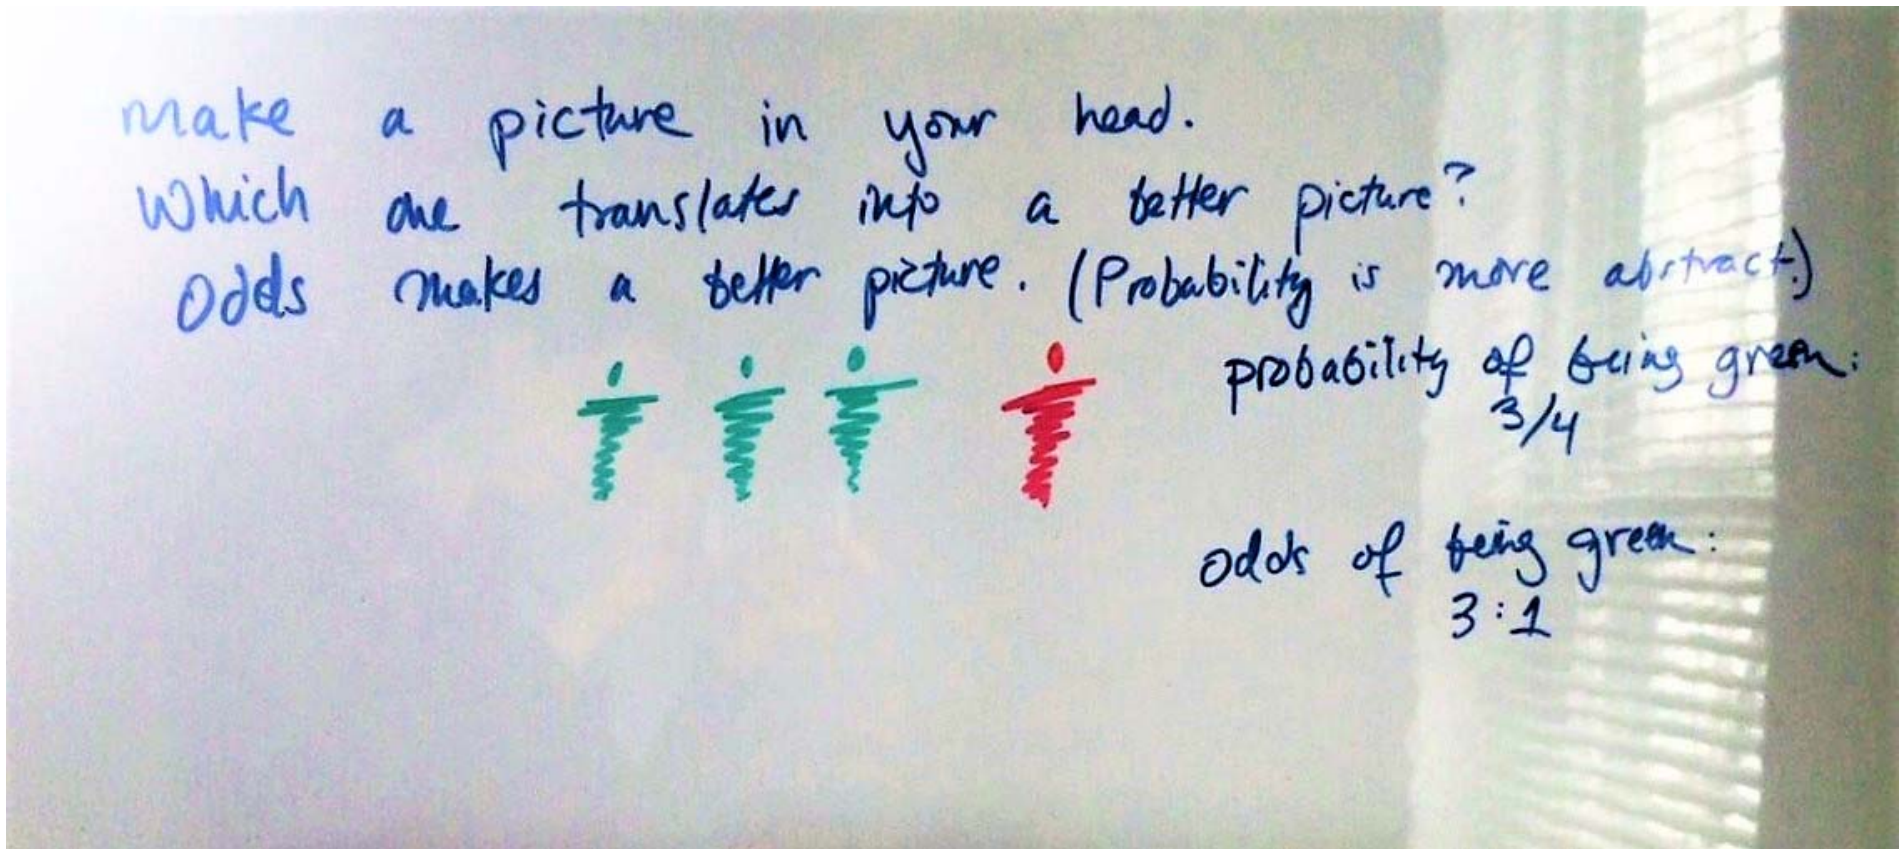 make a picture in your head.
Which one translates into a better picture?
Odds makes a better picture. (Probability is more abstract.)
probability of being green:
3/4
odds of being green:
3:1